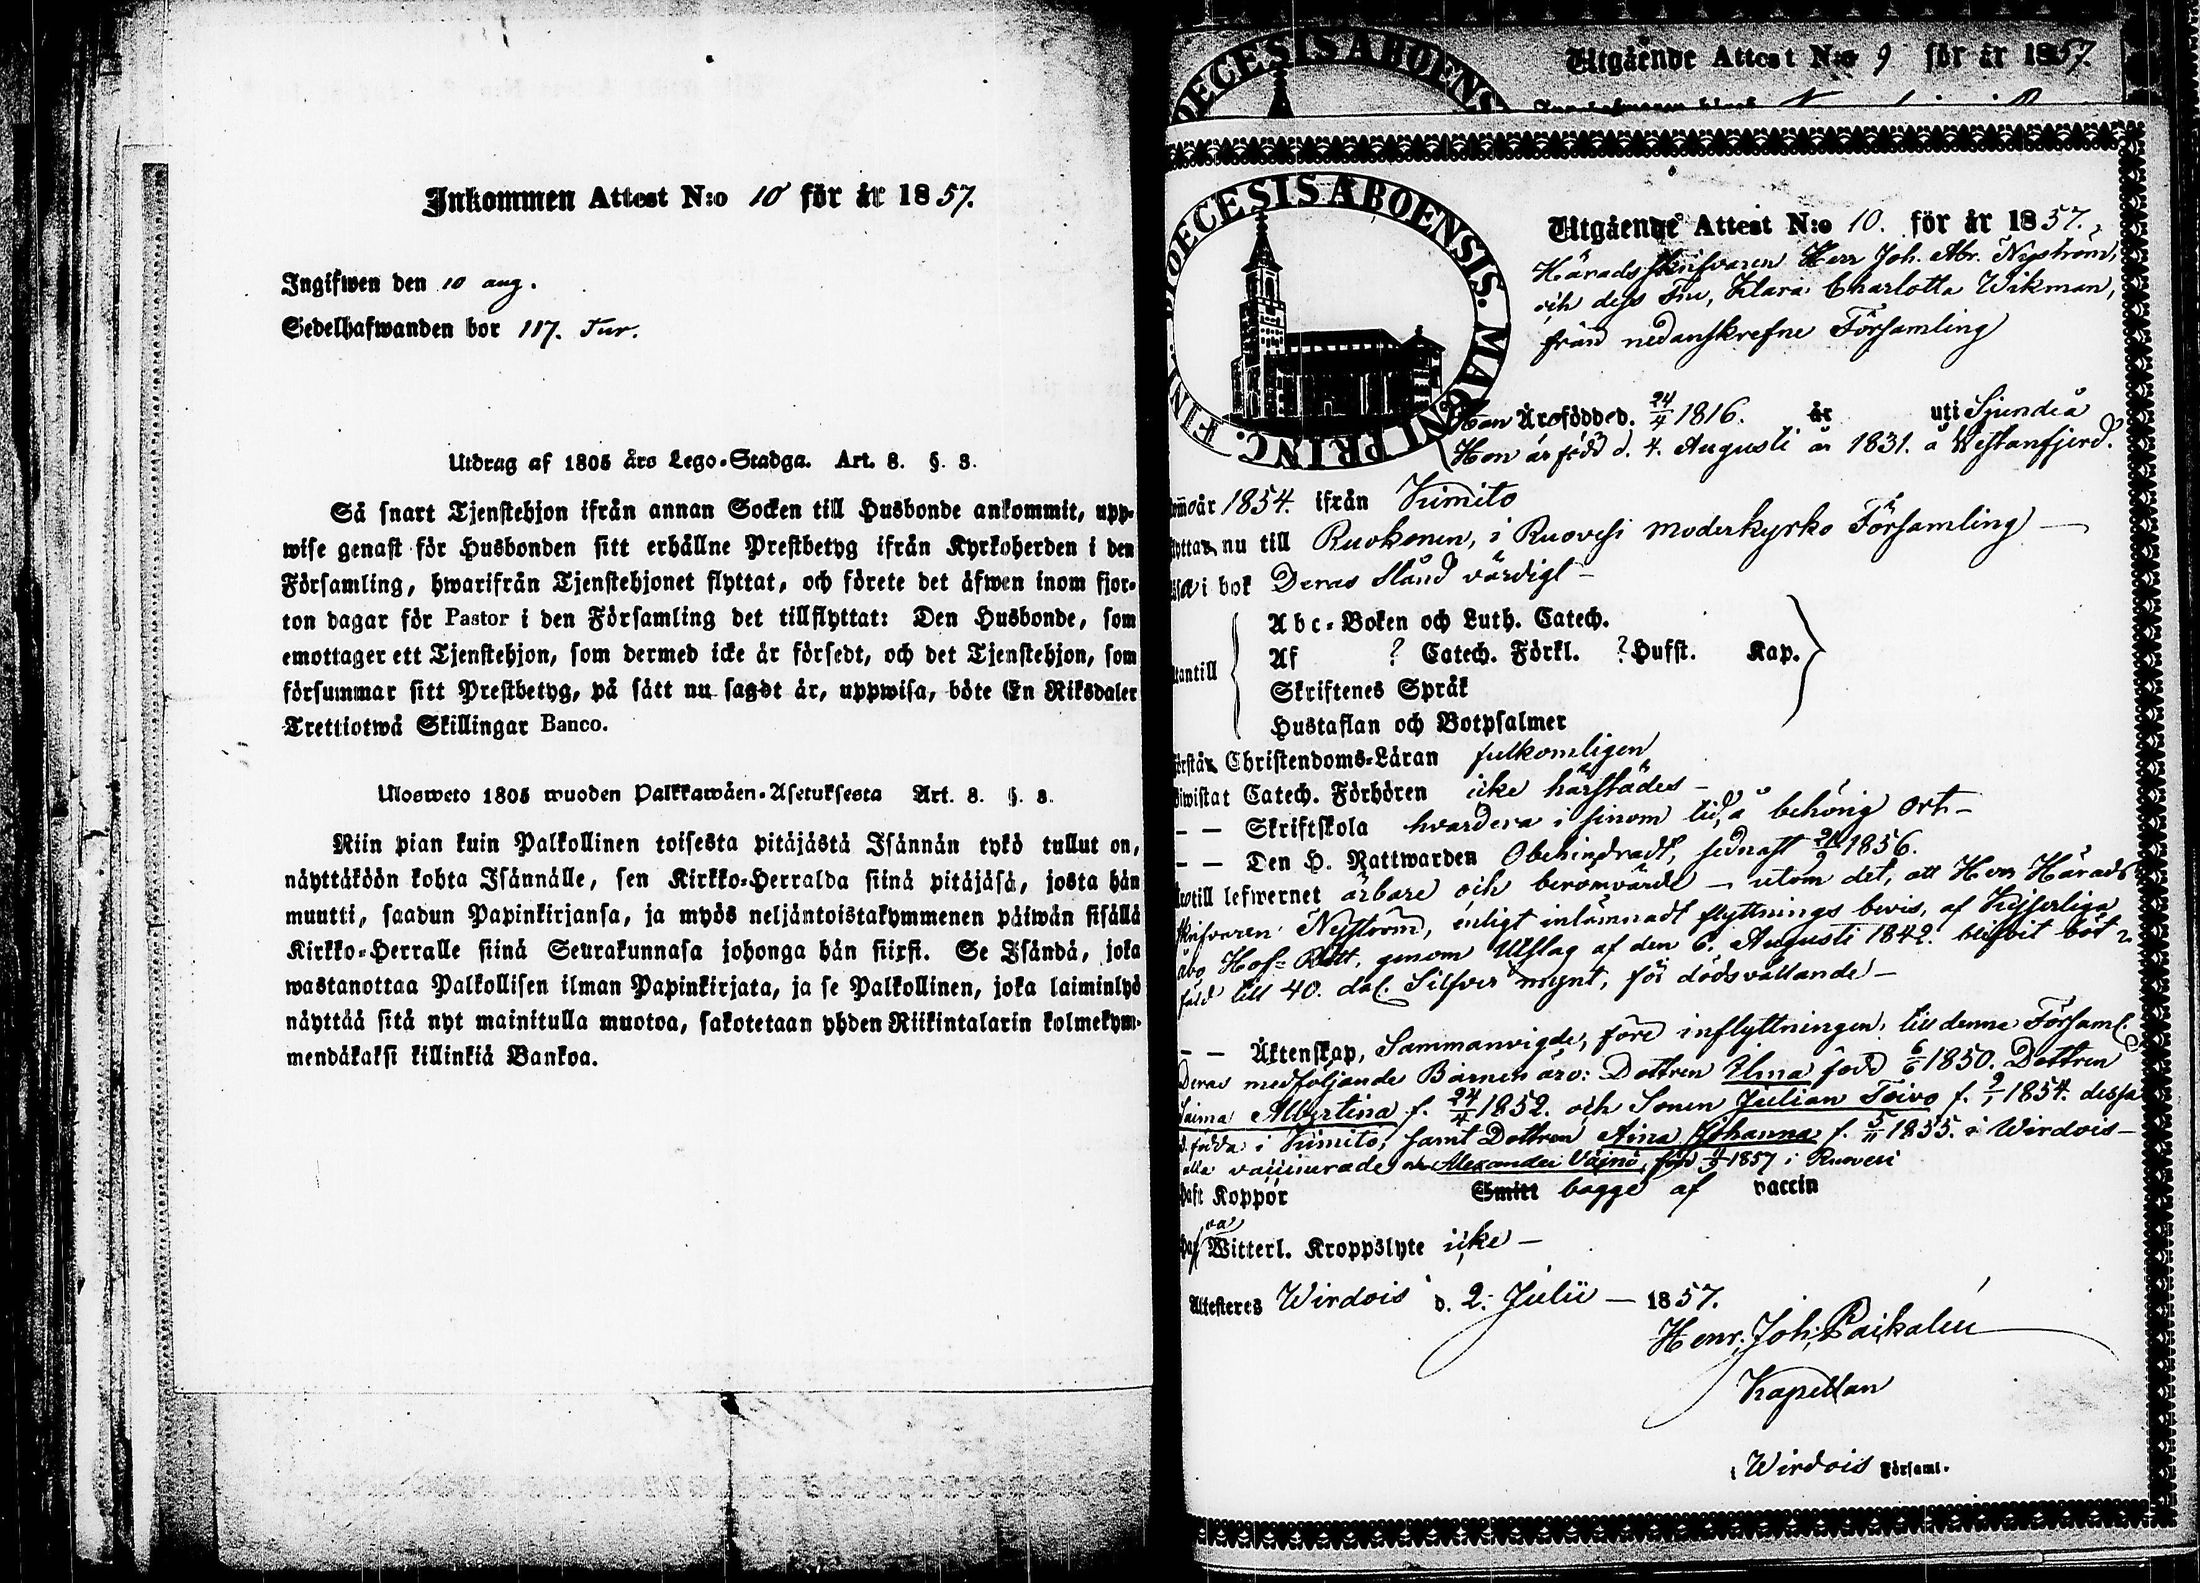 Inkommen Attest N:o 10 för år 1857.
Ingifwen den 10 aug.
Sedelhafwanden bor 117. Tur.
Utdrag af 1805 års Lego-Stadga. Art. 8. §. 3.
Så snart Tjenstehjon ifrån annan Socken till Husbonde ankommit, upp-
wise genast för Husbonden sitt erhållne Prestbetyg ifrån Kyrkoherden i den
Församling, hwarifrån Tjenstehjonet flyttat, och förete det äfwen inom fjor-
ton dagar för Pastor i den Församling det tillflyttat: Den Husbonde, som
emottager ett Tjenstehjon, som dermed icke är försedt, och det Tjenstehjon, som
försummar sitt Prestbetyg, på sätt nu sagdt är, uppwisa, böte En Riksdaler
Trettiotwå Skillingar Banco.
Ulosweto 1805 wuoden Palkkawäen-Asetuksesta Art. 8. §. 3.
Niin pian kuin Palkollinen toisesta pitäjästä Isännän tykö tullut on,
näyttäköön kohta Isännälle, sen Kirkko-Herralda siinä pitäjäsä, josta hän
muutti, saadun Papinkirjansa, ja myös neljäntoistakymmenen päiwän sisällä
Kirkko-Herralle siinä Seurakunnasa johonga hän siirsi. Se Isändä, joka
wastanottaa Palkollisen ilman Papinkirjata, ja se Palkollinen, joka laiminlyö
näyttää sitä nyt mainitulla muotoa, sakotetaan yhden Riikintalarin kolmekym-
mendäkaksi killinkiä Bankoa.
DIOECESIS ABOENS
Utgående Attest N:o 9 för år 1857.
DIOECESIS ABOENSIS. MAGNI PRINC. FINL.
Utgående Attest N:o 10. för år 1857.
Häradsskrifvaren Herr Joh. Abr. Nyström,
och dess Fru, Klara Charlotta Wikman,
från nedanskrefne Församling
Han Är född d. 24/4 1816. år uti Sjundeå
Hon är född d. 4. Augusti år 1831. å Westanfjerd.
år 1854. ifrån Kimito
nu till Ruokonen, i Ruovesi moderkyrko Församling
i bok Deras stånd värdigt
Abc-Boken och Luth. Catech.
Af ? Catech. Förkl. ? Husst. Kap.
Skriftenes Språk
Hustaflan och Botpsalmer
Christendoms-Läran fulkomligen
Biwistat Catech. Förhören icke härstädes
Skriftskola hvardera i sinom tid, å behörig ort
Den H. Nattwarden Obehindradt, sednast 1856.
till lefwernet ärbare och berömvärde – utom det, att Herr Härads
skrifvaren Nyström, enligt inlämnadt flyttnings bevis, af Kejserliga
Åbo Hof-Rätt, genom Utslag af den 6. Augusti 1842. blifvit böt
fäld till 40. dal. Silfver mynt, för dödsvållande
Äktenskap, Sammanvigde, före inflyttningen till denna Församl.
Deras medföljande Barnen äro: Dottren Elma född 6/6 1850. Dottren
Saima Albertina f. 24/4 1852. och Sonen Julian Toivo f. 9/1 1854. dessa
födda i Kimito, samt Dottren Aina Johanna f. 5/11 1855. i Wirdois
alla vaccinerade Alexander Väinö, född 1857 i Ruovesi
haft Koppor Smitt bagge af vaccin
Witterl. Kroppslyte icke
Attesteres Wirdois d. 2. Julii 1857.
Henr. Joh. Paikalén
Kapellan
i Wirdois Församl.